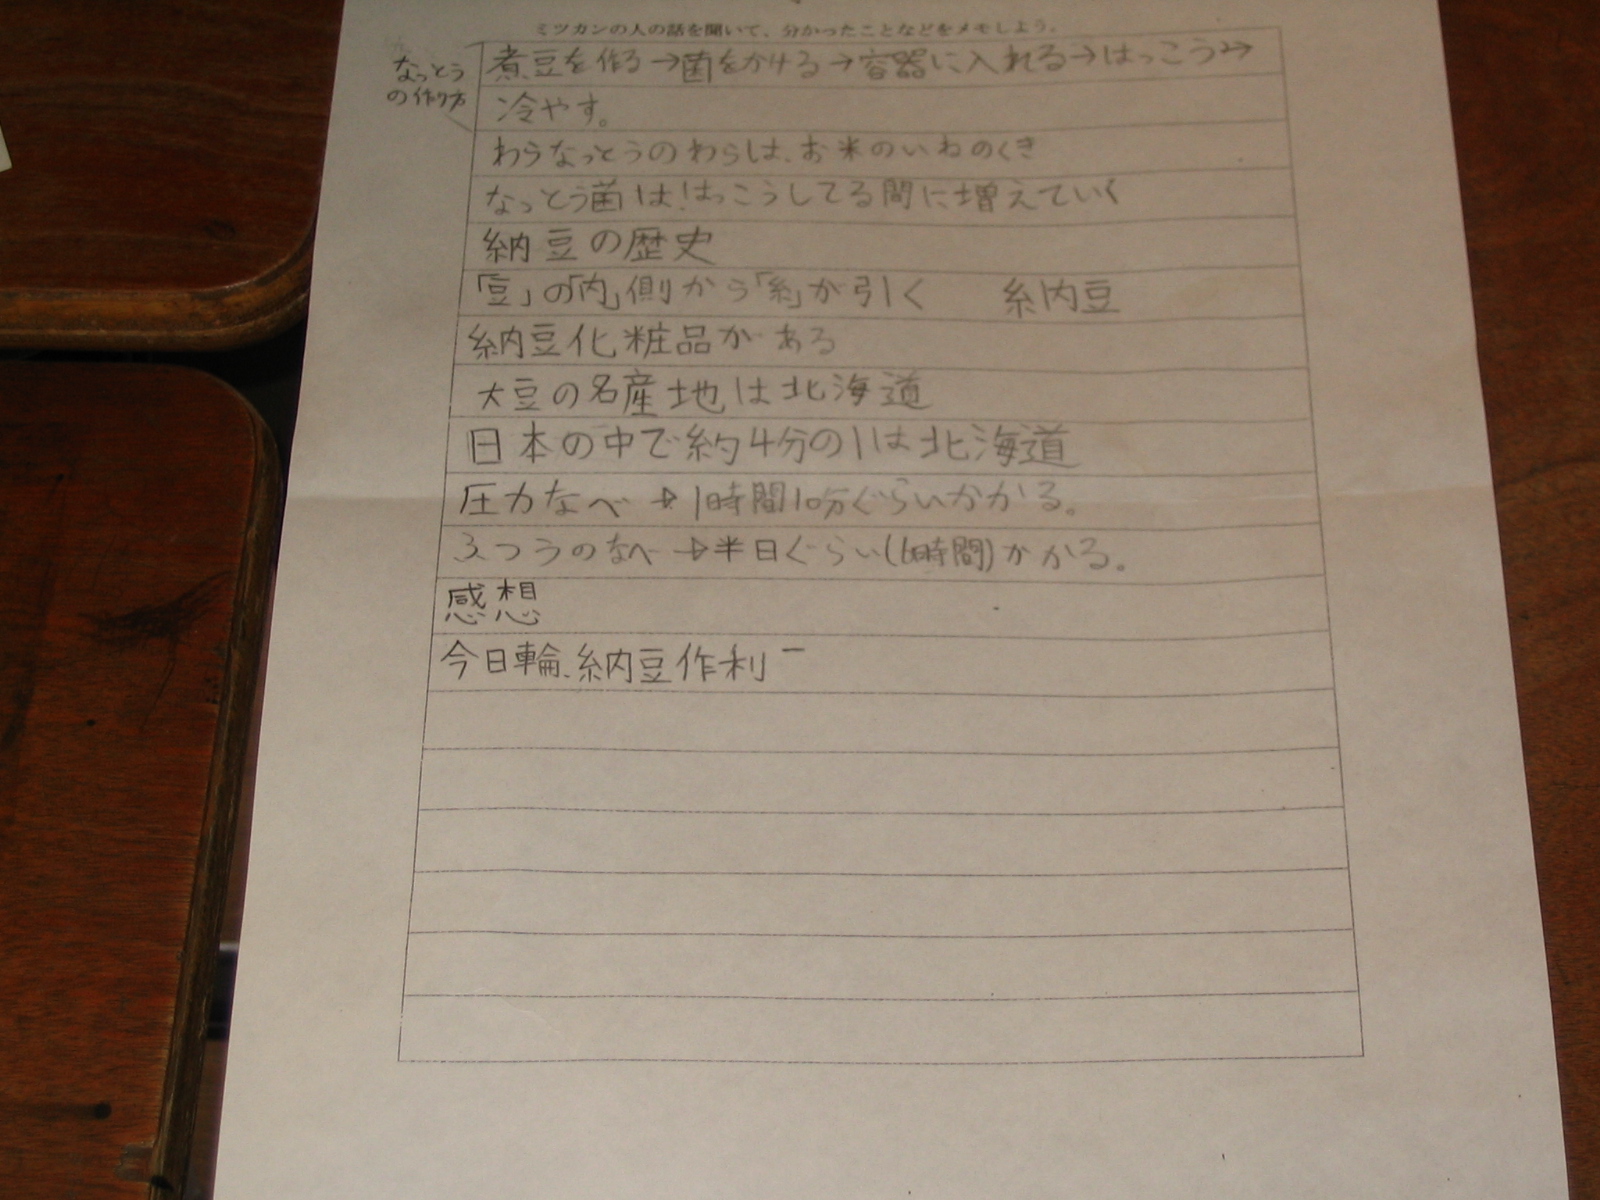 ミツカンの人の話を聞いて、分かったことなどをメモしよう。
なっとう
の作り方
煮豆を作る→菌をかける→容器に入れる→はっこう→
冷やす。
わらなっとうのわらは、お米のいねのくき
なっとう菌は!はっこうしてる間に増えていく
納豆の歴史
「豆」の「内」側から「糸」が引く 糸内豆
納豆化粧品がある
大豆の名産地は北海道
日本の中で約4分の1は北海道
圧力なべ→1時間10分ぐらいかかる。
ふつうのなべ→半日ぐらい(6時間)かかる。
感想
今日輪、納豆作利